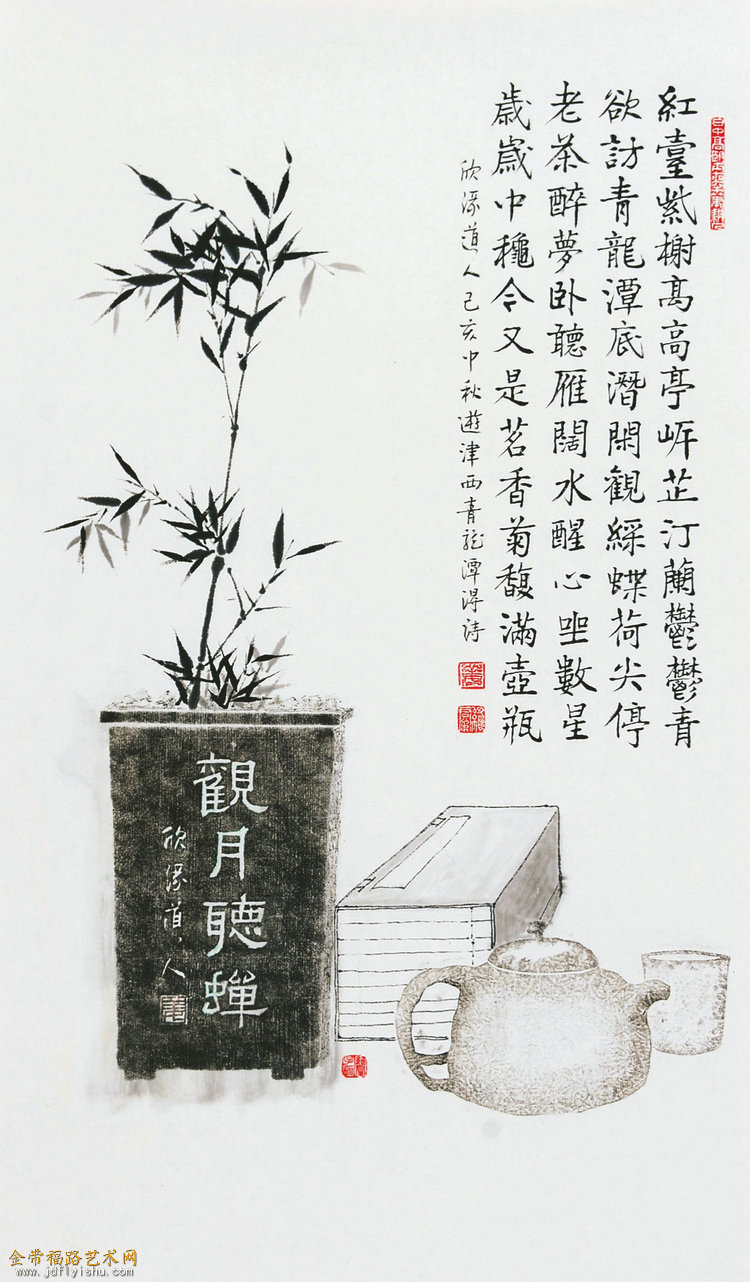 紅臺紫榭髙高亭岸芷汀蘭鬱鬱青
欲訪青龍潭底潛閑觀綵蝶荷尖停
老茶醉夢卧聽雁闊水醒心坐數星
歲歲中龝今又是茗香菊馥滿壺瓶
欣濠道人己亥中秋遊津西青龍潭得詩
觀月聽蟬
欣濠道人
金带福路艺术网
www.jdflyishu.com